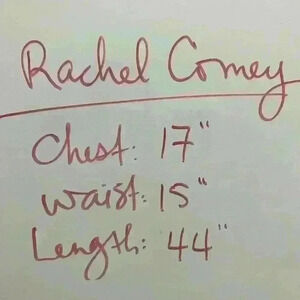 Rachel Comey
Chest: 17"
waist: 15"
Length: 44"